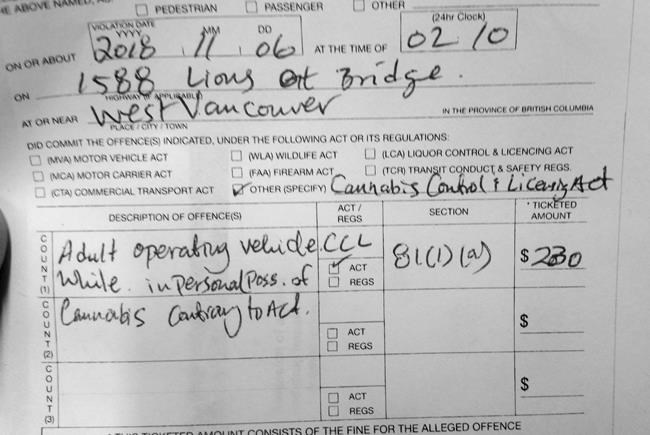 HE ABOVE NAMED, AS
☐ PEDESTRIAN ☐ PASSENGER ☐ OTHER
VIOLATION DATE (24hr Clock)
YYYY MM DD
ON OR ABOUT 2018 11 06 AT THE TIME OF 02 10
ON 1588 Lions Gt Bridge.
HIGHWAY (IF APPLICABLE)
AT OR NEAR West Vancouver IN THE PROVINCE OF BRITISH COLUMBIA
PLACE / CITY / TOWN
DID COMMIT THE OFFENCE(S) INDICATED, UNDER THE FOLLOWING ACT OR ITS REGULATIONS:
☐ (MVA) MOTOR VEHICLE ACT ☐ (WLA) WILDLIFE ACT ☐ (LCA) LIQUOR CONTROL & LICENCING ACT
☐ (MCA) MOTOR CARRIER ACT ☐ (FAA) FIREARM ACT ☐ (TCR) TRANSIT CONDUCT & SAFETY REGS.
☐ (CTA) COMMERCIAL TRANSPORT ACT ☑ OTHER (SPECIFY) Cannabis Control & Licensing Act
DESCRIPTION OF OFFENCE(S) ACT / REGS SECTION * TICKETED AMOUNT
COUNT (1) Adult operating vehicle CCL 81(1)(a) $ 230
While in personal Poss. of ☑ ACT
☐ REGS
COUNT (2) Cannabis contrary to Act. $
☐ ACT
☐ REGS
COUNT (3) $
☐ ACT
☐ REGS
* THIS TICKETED AMOUNT CONSISTS OF THE FINE FOR THE ALLEGED OFFENCE